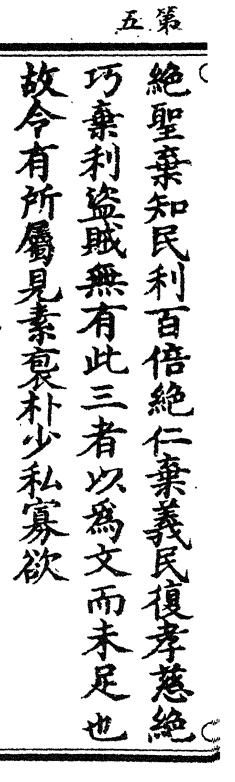 第五
絶聖棄知民利百倍絶仁棄義民復孝慈絶
巧棄利盗賊無有此三者以爲文而未足也
故令有所屬見素裒朴少私寡欲